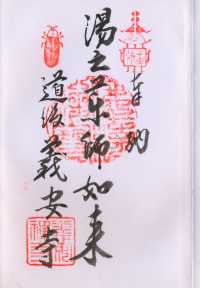 奉納
湯之薬師如来
道後義安寺